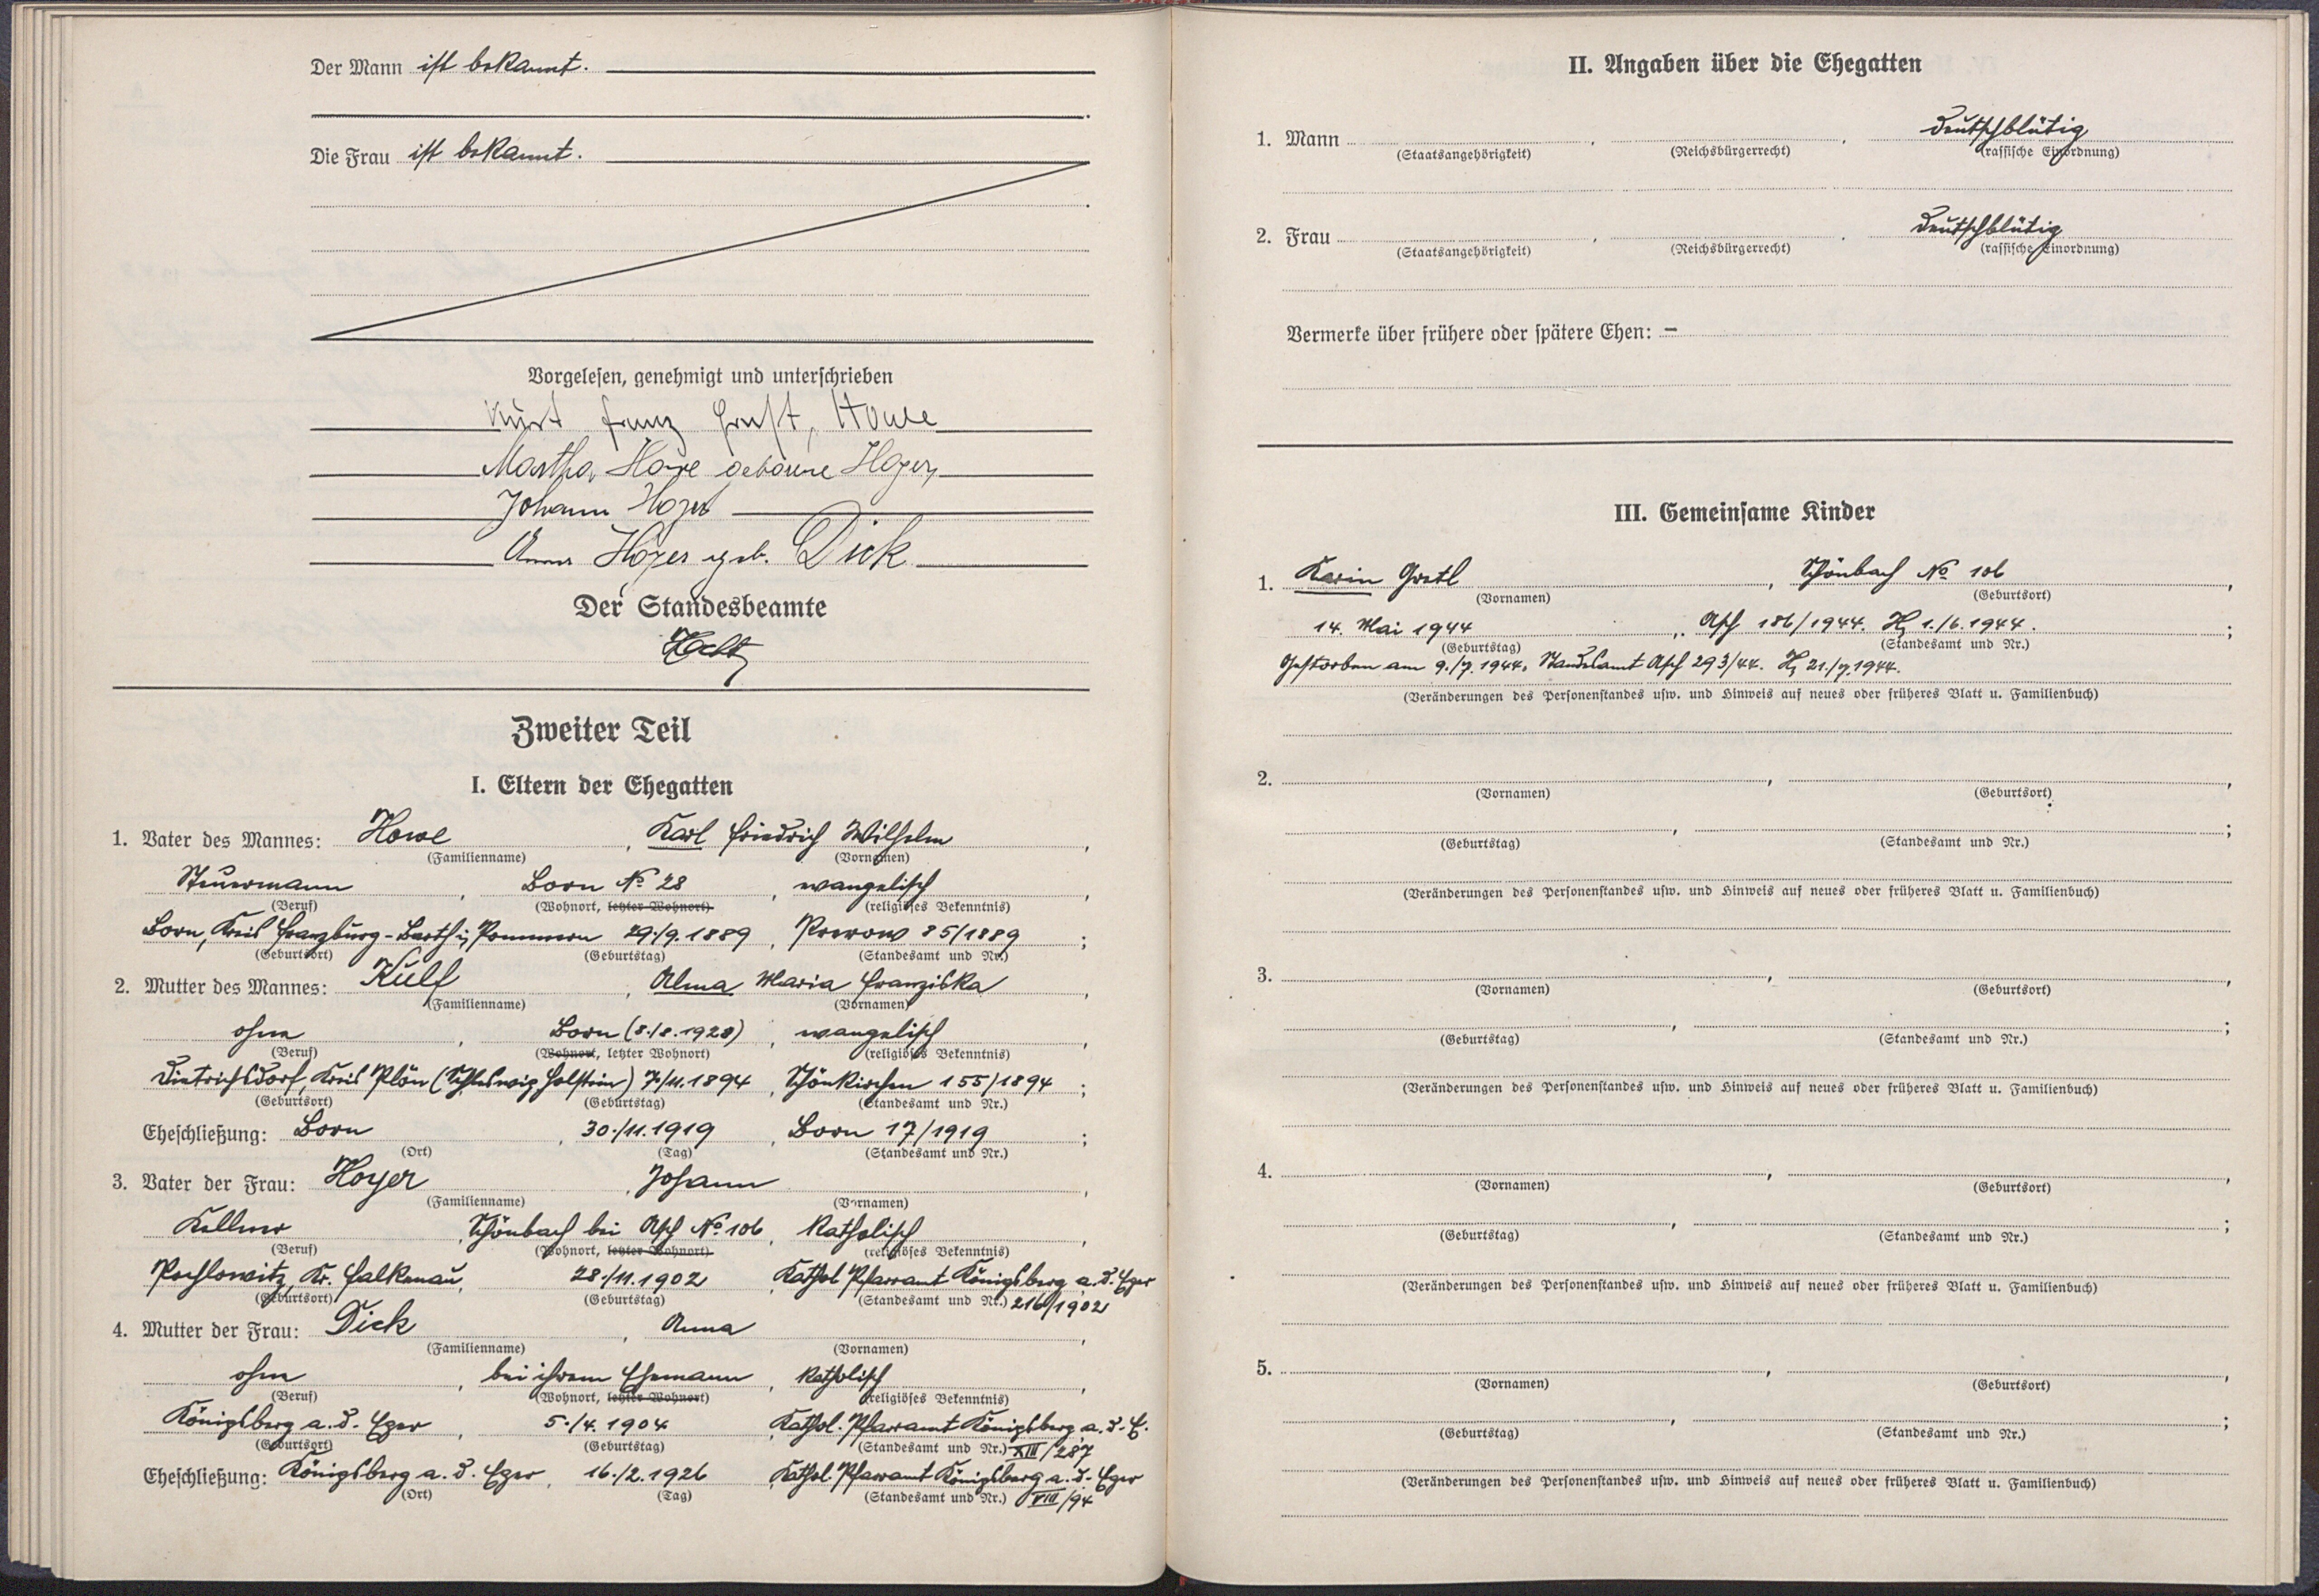 Der Mann ist bekannt.
Die Frau ist bekannt.
Vorgelesen, genehmigt und unterschrieben
Kurt Franz Ernst, Howe
Martha Howe geborene Hoyer,
Johann Hoyer
Anna Hoyer geb. Dick
Der Standesbeamte
Zweiter Teil
I. Eltern der Ehegatten
1. Vater des Mannes: Howe, Karl Friedrich Wilhelm,
(Familienname) (Vornamen)
Steuermann, Born No 28, evangelisch,
(Beruf) (Wohnort, letzter Wohnort) (religiöses Bekenntnis)
Born, Kreis Franzburg-Barth i. Pommern 29./9. 1889, Prerow 85/1889;
(Geburtsort) (Geburtstag) (Standesamt und Nr.)
2. Mutter des Mannes: Külf, Alma Maria Franziska,
(Familienname) (Vornamen)
ohne, Born (8./8. 1928), evangelisch,
(Beruf) (Wohnort, letzter Wohnort) (religiöses Bekenntnis)
Dietrichsdorf, Kreis Plön (Schleswig Holstein) 7./11. 1894, Schönkirchen 155/1894;
(Geburtsort) (Geburtstag) (Standesamt und Nr.)
Eheschließung: Born, 30./11. 1919, Born 17/1919;
(Ort) (Tag) (Standesamt und Nr.)
3. Vater der Frau: Hoyer, Johann,
(Familienname) (Vornamen)
Kellner, Schönbach bei Asch No 106, katholisch,
(Beruf) (Wohnort, letzter Wohnort) (religiöses Bekenntnis)
Pochlowitz, Kr. Falkenau, 28./11. 1902, Kathol. Pfarramt Königsberg a. d. Eger
(Geburtsort) (Geburtstag) (Standesamt und Nr.) 216/1902
4. Mutter der Frau: Dick, Anna,
(Familienname) (Vornamen)
ohne, bei ihrem Ehemann, katholisch,
(Beruf) (Wohnort, letzter Wohnort) (religiöses Bekenntnis)
Königsberg a. d. Eger, 5./4. 1904, Kathol. Pfarramt Königsberg a. d. E.
(Geburtsort) (Geburtstag) (Standesamt und Nr.) XIII/287
Eheschließung: Königsberg a. d. Eger, 16./2. 1926, Kathol. Pfarramt Königsberg a. d. Eger
(Ort) (Tag) (Standesamt und Nr.) VIII/94
II. Angaben über die Ehegatten
1. Mann , , deutschblütig
(Staatsangehörigkeit) (Reichsbürgerrecht) (rassische Einordnung)
2. Frau , . deutschblütig
(Staatsangehörigkeit) (Reichsbürgerrecht) (rassische Einordnung)
Vermerke über frühere oder spätere Ehen: –
III. Gemeinsame Kinder
1. Karin Gretl, Schönbach No 106,
(Vornamen) (Geburtsort)
14. Mai 1944, Asch 186/1944. H, 1./6. 1944.;
(Geburtstag) (Standesamt und Nr.)
Gestorben am 9./7. 1944, Standesamt Asch 293/44. H, 21./7. 1944.
(Veränderungen des Personenstandes usw. und Hinweis auf neues oder früheres Blatt u. Familienbuch)
2. , ,
(Vornamen) (Geburtsort)
, ;
(Geburtstag) (Standesamt und Nr.)
(Veränderungen des Personenstandes usw. und Hinweis auf neues oder früheres Blatt u. Familienbuch)
3. , ,
(Vornamen) (Geburtsort)
, ;
(Geburtstag) (Standesamt und Nr.)
(Veränderungen des Personenstandes usw. und Hinweis auf neues oder früheres Blatt u. Familienbuch)
4. , ,
(Vornamen) (Geburtsort)
, ;
(Geburtstag) (Standesamt und Nr.)
(Veränderungen des Personenstandes usw. und Hinweis auf neues oder früheres Blatt u. Familienbuch)
5. , ,
(Vornamen) (Geburtsort)
, ;
(Geburtstag) (Standesamt und Nr.)
(Veränderungen des Personenstandes usw. und Hinweis auf neues oder früheres Blatt u. Familienbuch)